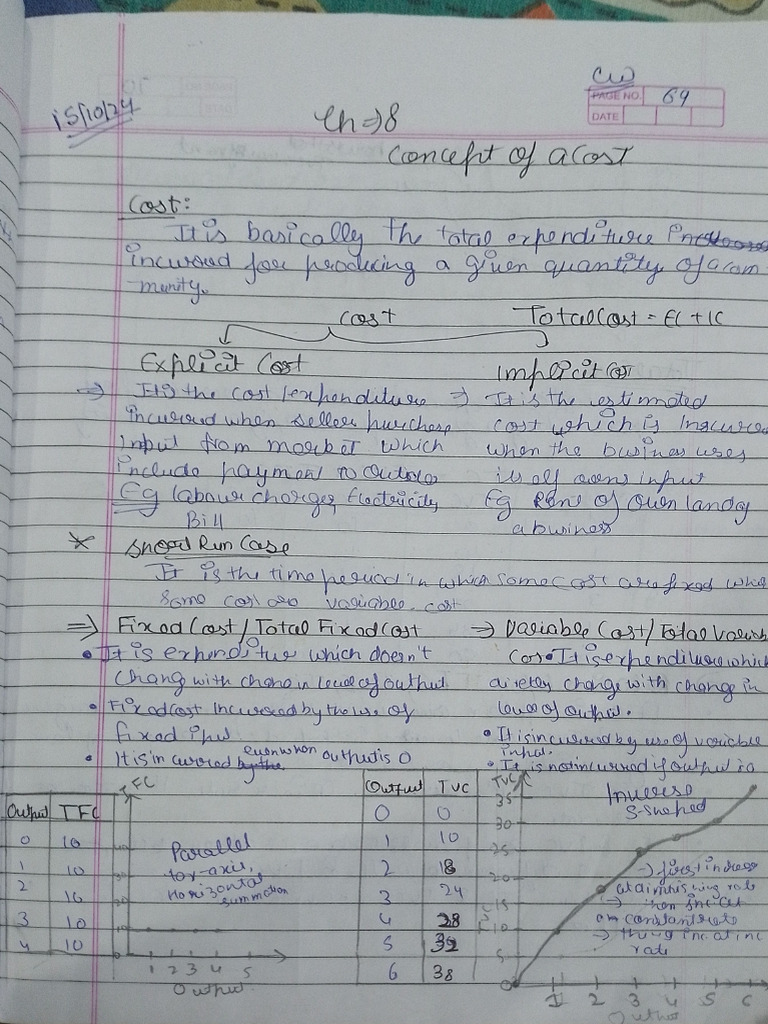 CW
PAGE NO. 69
DATE
15/10/24
Ch ⇒ 8
Concept of a Cost
Cost:
It is basically the total expenditure
incurred for producing a given quantity of a com
-munity.
Cost
Total Cost = EC + IC
Explicit Cost
⇒ It is the cost/expenditure
incurred when seller purchase
Input from market which
include payment to
Eg labour charges Electricity
Bill
Implicit Cost
⇒ It is the estimated
cost which is Incurred
when the business uses
its own input
Eg Rent of Own land of
a business
* Short Run Case
It is the time period in which some cost are fixed
some cost are variable cost
⇒ Fixed Cost / Total Fixed Cost
• It is expenditure which doesn't
change with change in level of output
• Fixed cost Incurred by the use of
fixed input
• It is incurred even when output is 0
→ Variable Cost / Total Variab
Cos • It is expenditure which
directly change with change in
level of output.
• It is incurred by use of variable
input.
• It is not incurred if output is
Output TFC
0 10
1 10
2 10
3 10
4 10
TFC
Parallel
to x-axis,
Horizontal
summation
1 2 3 4 5
Output
Output TVC
0 0
1 10
2 18
3 24
4 28
5 32
6 38
TVC
35
30
25
20
15
10
5
0
Inverse
S-shaped
→ first increase
at diminishing rate
→ then
on constant rate
→ inc at inc
rate
1 2 3 4 5 6
Output